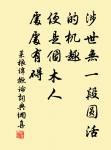 涉世無一段圓活
的机趣
便是個木人
處處有碍
菜根譚概論詞典網喜